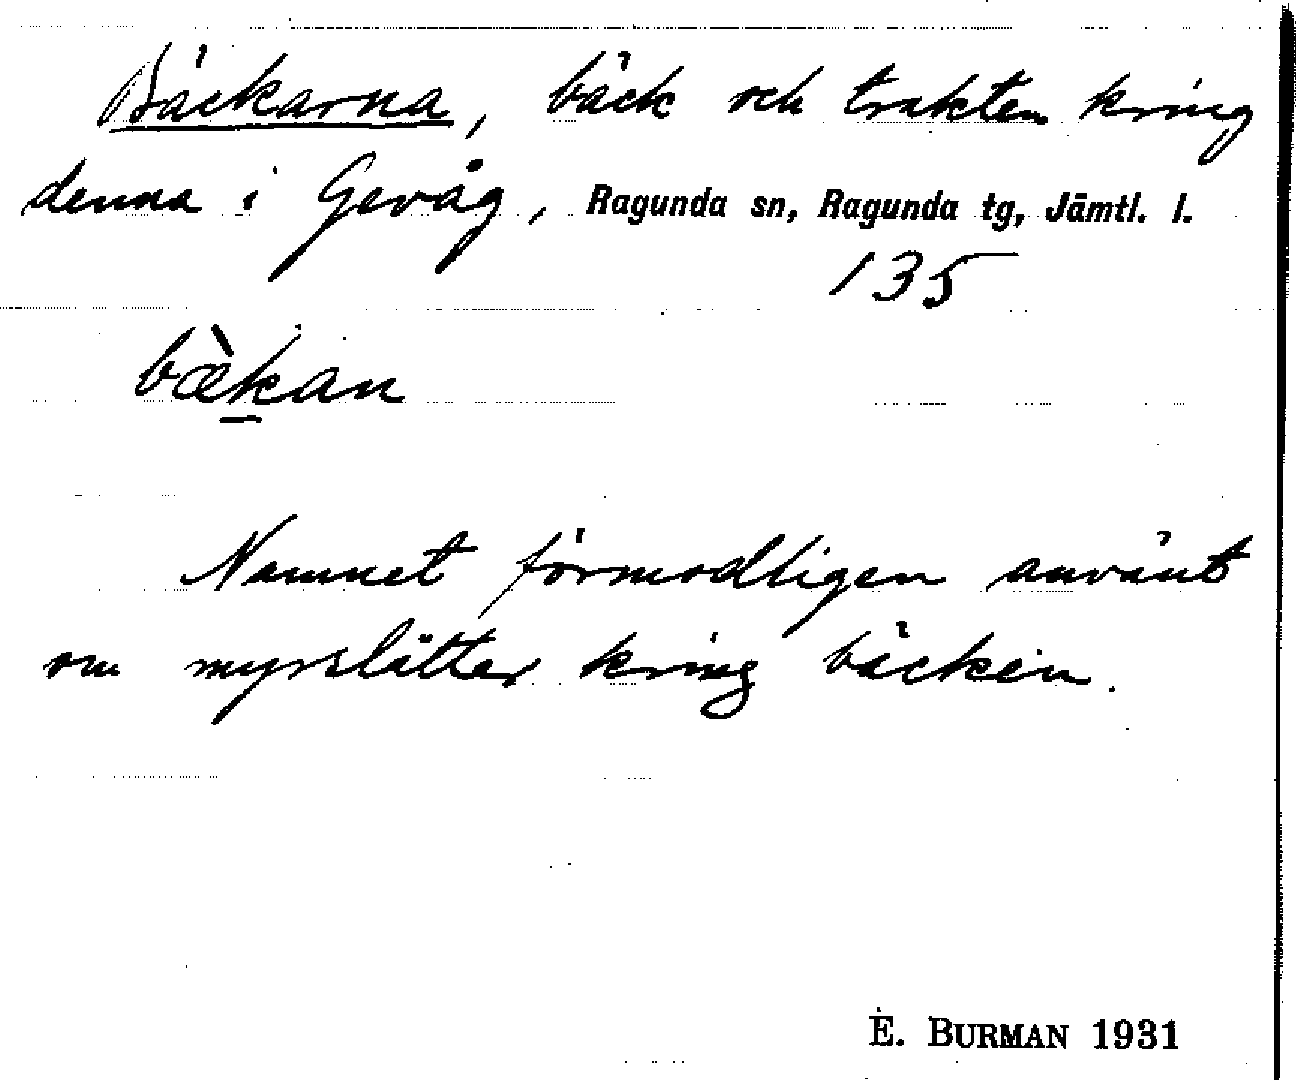 Bäckarna, bäck och trakten kring
denna i Gevåg, Ragunda sn, Ragunda tg, Jämtl. l.
135
bæ̀k̲an
Namnet förmodligen använt
om myrslåtter kring bäcken.
E. BURMAN 1931